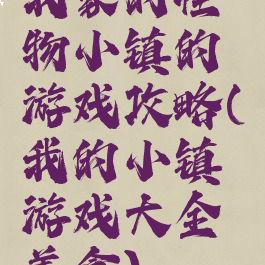 我家的怪
物小镇的
游戏攻略(
我的小镇
游戏大全